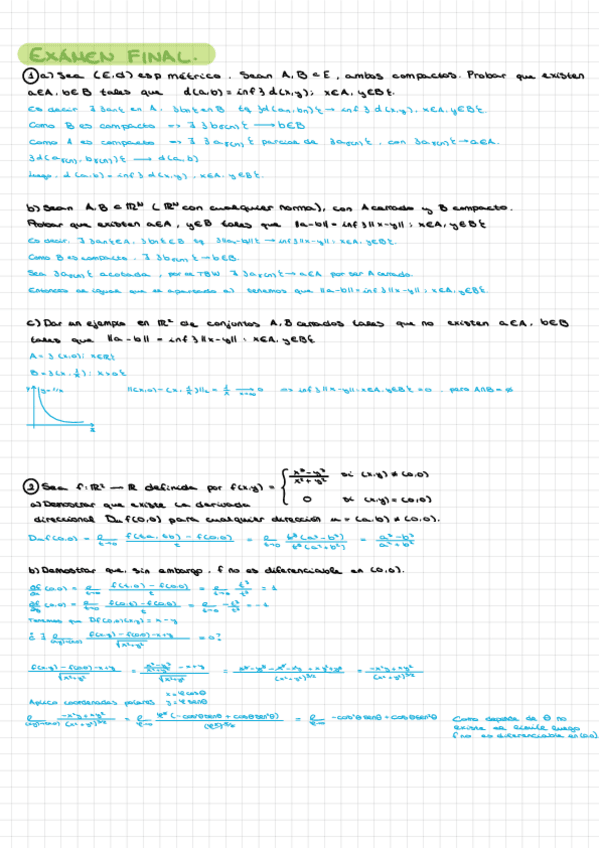 EXÁMEN FINAL.
① a) Sea (E,d) esp métrico. Sean A, B ⊂ E, ambos compactos. Probar que existen
a∈A, b∈B tales que d(a,b) = inf { d(x,y); x∈A, y∈B }.
Es decir ∃ {an} en A, {bn} en B tq {d(an,bn)} → inf { d(x,y), x∈A, y∈B }.
Como B es compacto => ∃ {bσ(n)} → b∈B
Como A es compacto => ∃ {aσ(n)} parcial de {aσ(n)}, con {aσ(n)} → a∈A.
{d(aσ(n), bσ(n))} → d(a,b)
luego, d(a,b) = inf { d(x,y), x∈A, y∈B }.
b) Sean A, B ⊂ ℝᴺ (ℝᴺ con cualquier norma), con A cerrado y B compacto.
Probar que existen a∈A, y∈B tales que ||a-b|| = inf { ||x-y||; x∈A, y∈B }
Es decir, ∃ {an} ∈ A, {bn} ∈ B tq {||a-b||} → inf { ||x-y||; x∈A, y∈B }.
Como B es compacto, ∃ {bσ(n)} → b∈B.
Sea {aσ(n)} acotada, por el TBW ∃ {aσ(n)} → a∈A por ser A cerrado.
Entonces de igual que el apartado a) tenemos que ||a-b|| = inf { ||x-y||; x∈A, y∈B }.
c) Dar un ejemplo en ℝ² de conjuntos A, B cerrados tales que no existen a∈A, b∈B
tales que ||a-b|| = inf { ||x-y||; x∈A, y∈B }
A = { (x,0); x∈ℝ }
B = { (x, 1/x); x>0 }
y y=1/x
||(x,0) - (x, 1/x)|| = 1/x → 0 => inf { ||x-y||, x∈A, y∈B } = 0, pero A∩B = ∅
② Sea f: ℝ² → ℝ definida por f(x,y) = { (x³-y³)/(x²+y²) si (x,y) ≠ (0,0)
0 si (x,y) = (0,0)
a) Demostrar que existe la derivada
direccional Du f(0,0) para cualquier dirección u = (a,b) ≠ (0,0).
Du f(0,0) = ℓ t→0 (f(ta,tb) - f(0,0))/t = ℓ t→0 t³(a³-b³)/t³(a²+b²) = (a³-b³)/(a²+b²)
b) Demostrar que, sin embargo, f no es diferenciable en (0,0).
∂f/∂x (0,0) = ℓ t→0 (f(t,0) - f(0,0))/t = ℓ t→0 t³/t³ = 1
∂f/∂y (0,0) = ℓ t→0 (f(0,t) - f(0,0))/t = ℓ t→0 -t³/t³ = -1
Tenemos que Df(0,0)(x,y) = x-y
¿∃ ℓ (x,y)→(0,0) (f(x,y) - f(0,0) - x+y)/√(x²+y²) = 0?
(f(x,y) - f(0,0) - x+y)/√(x²+y²) = ((x³-y³)/(x²+y²) - x+y)/√(x²+y²) = (x³-y³-x³-xy²+x²y+y³)/(x²+y²)^3/2 = (-xy²+x²y)/(x²+y²)^3/2
x=rcosθ
Aplico coordenadas polares y=rsenθ
Como depende de θ no
existe el límite luego
f no es diferenciable en (0,0)